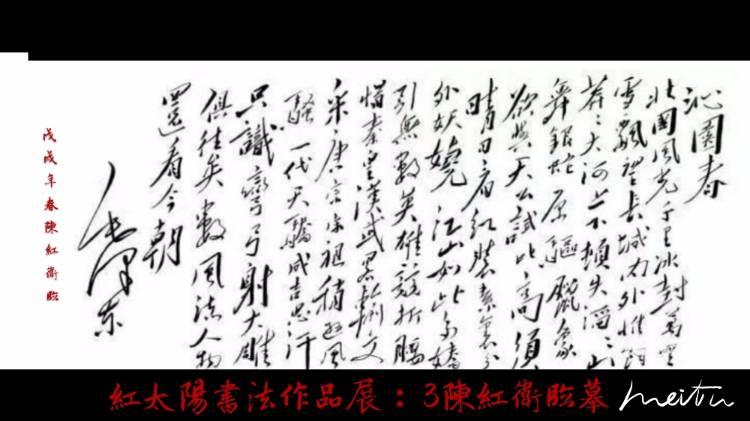 沁園春
北國風光千里冰封萬里
雪飄望長城內外惟餘
莽〻大河上下頓失滔〻山
舞銀蛇原驅臘象
欲與天公試比高須
晴日看紅裝素裹分
外妖嬈江山如此多嬌
引無數英雄競折腰
惜秦皇漢武略輸文
采唐宗宋祖稍遜風
騷一代天驕成吉思汗
只識彎弓射大雕
俱往矣數風流人物
還看今朝
毛澤東
戊戌年春陳紅衛临
紅太陽書法作品展：3陳紅衛临墓 meitu